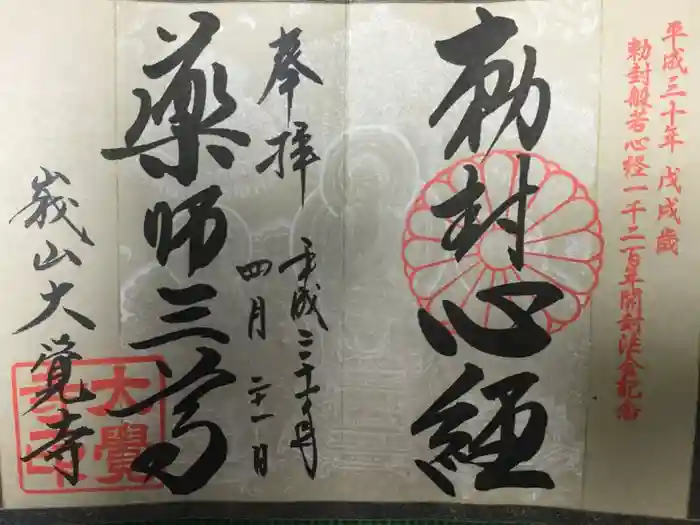 平成三十年 戊戌歳
勅封般若心経一千二百年開封法会記念
勅封心経
奉拝 平成三十年
四月 二十一日
薬師三尊
嵯山大覺寺
大覺寺印